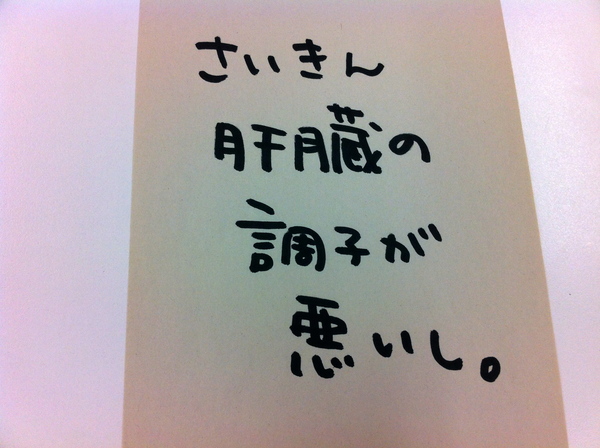 さいきん
肝臓の
調子が
悪いし。